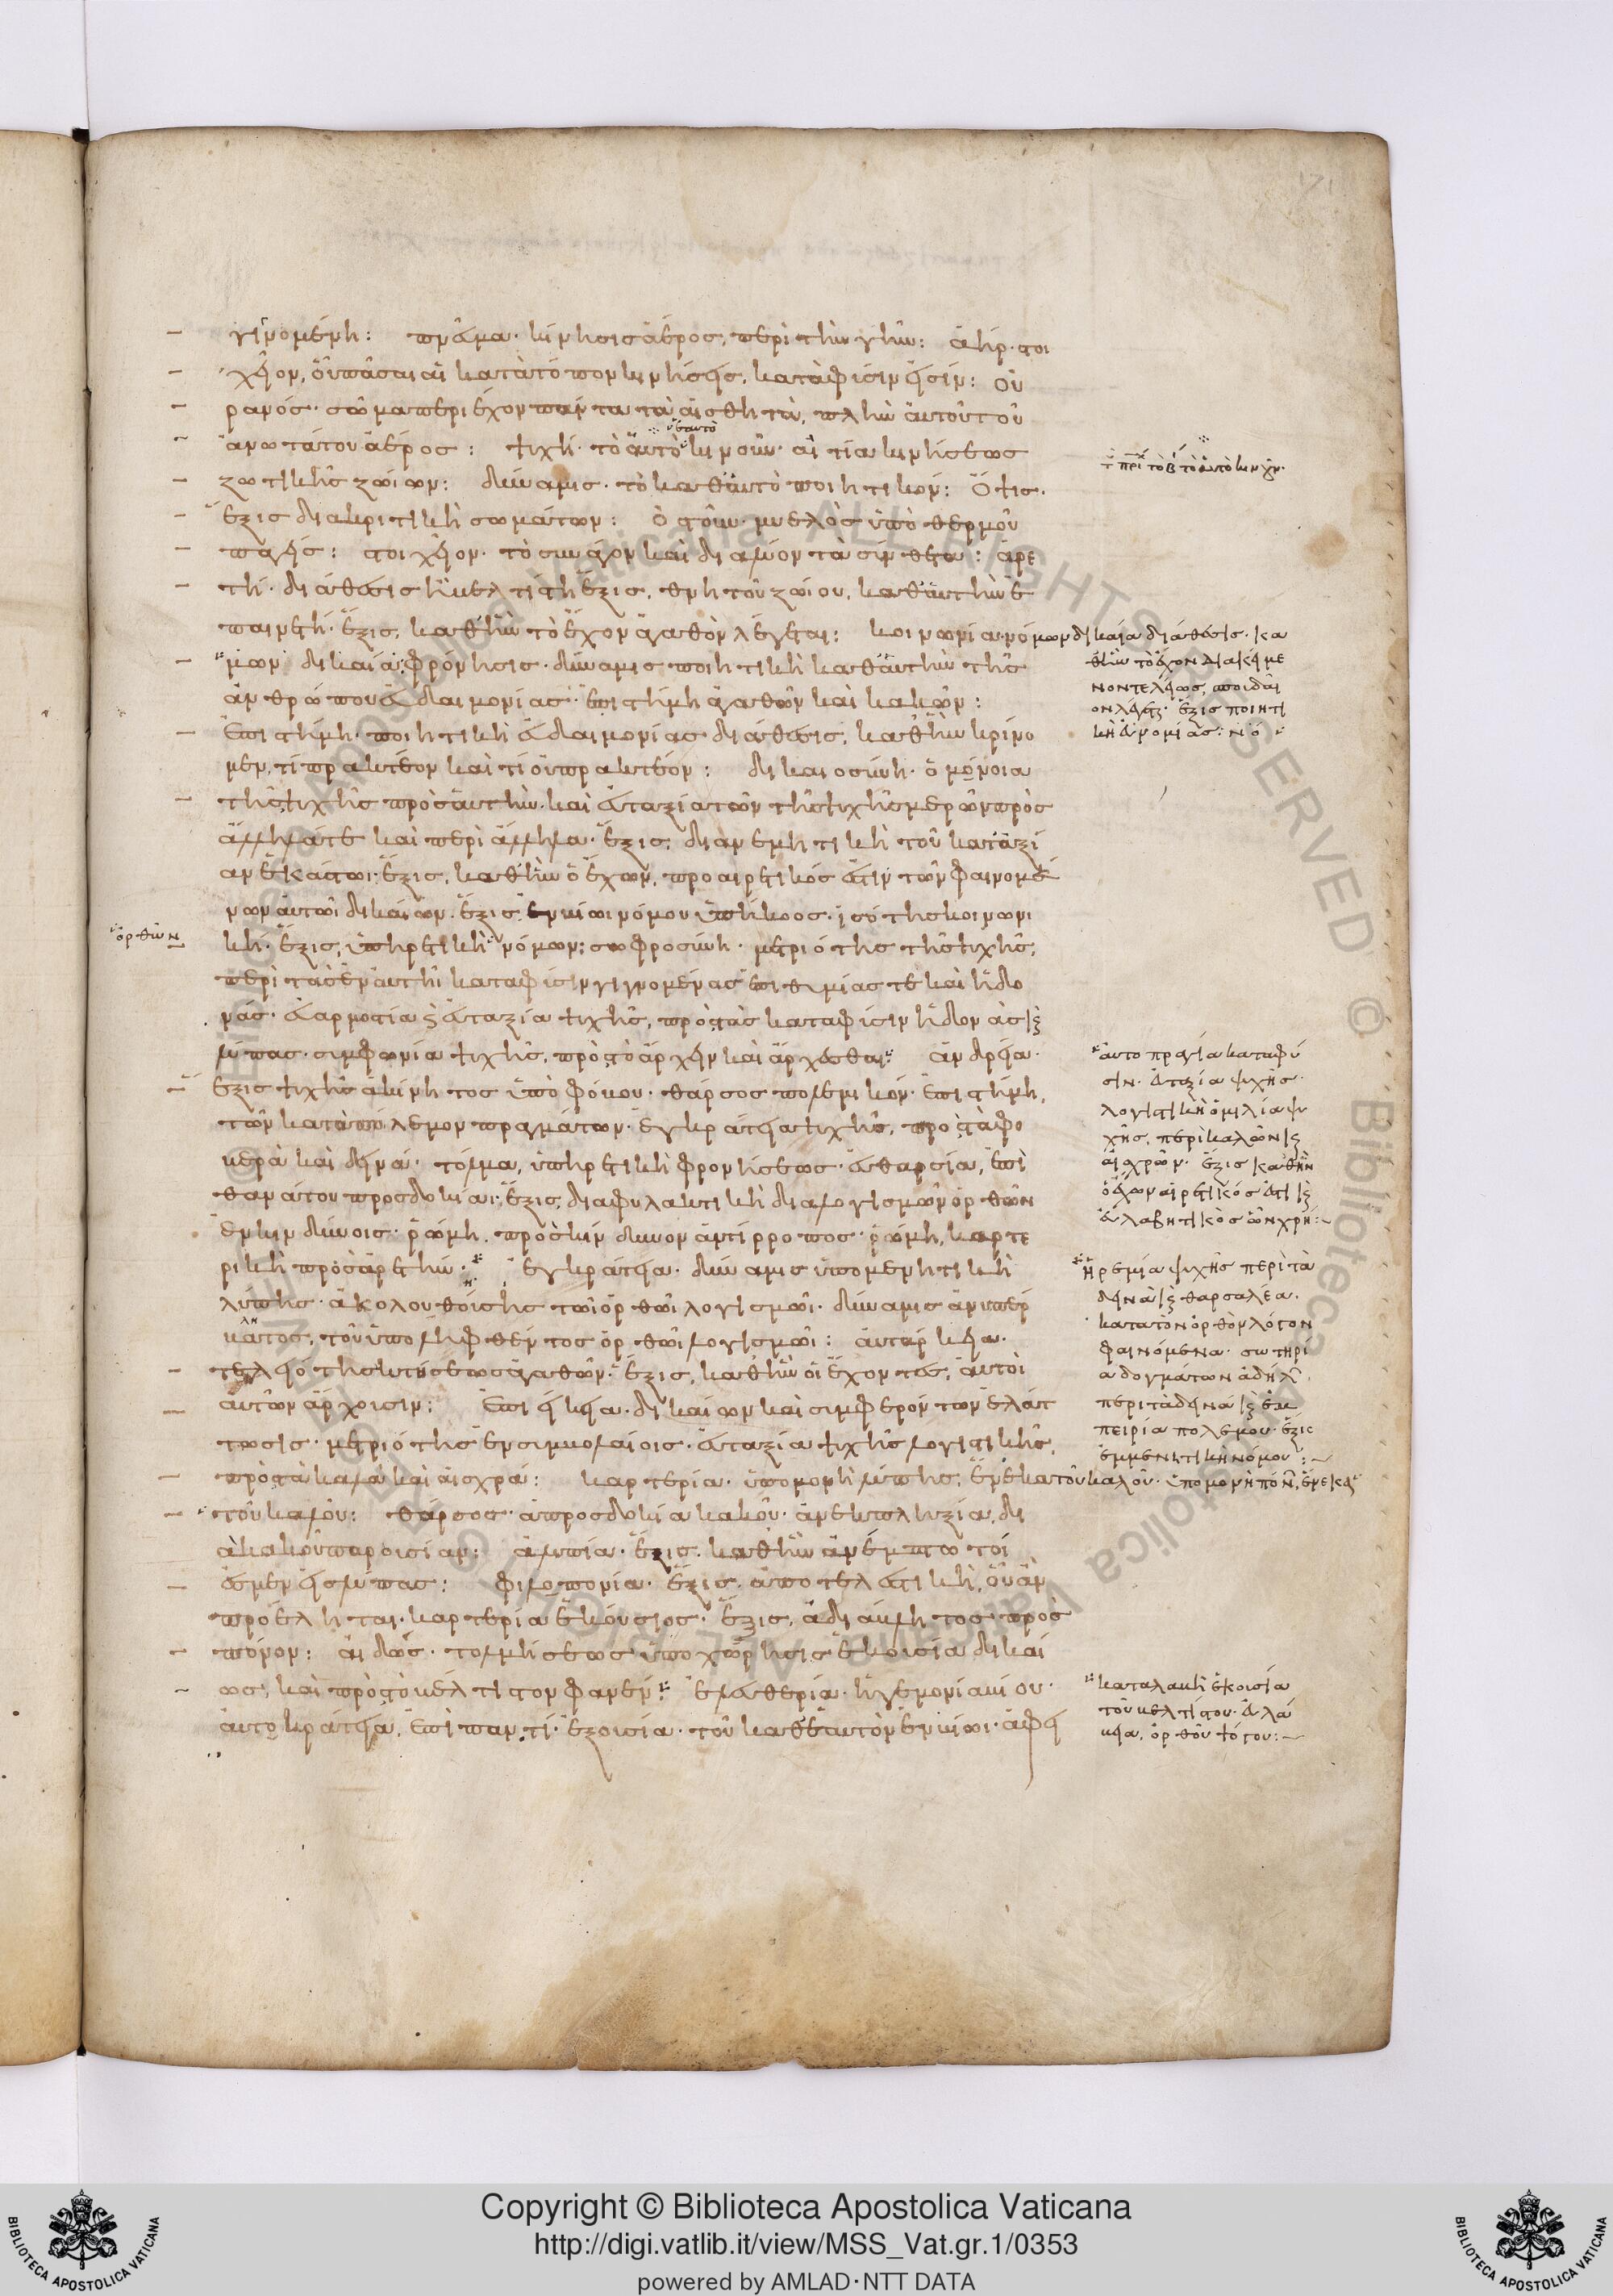 γινομένη: πνεῦμα· κίνησις ἀέρος, περὶ τὴν γῆν: ἀήρ· στοι
χεῖον, οὗ πᾶσαι αἱ κατὰ τόπον κινήσεις, κατὰ φύσιν εἰσίν: οὐ
ρανός· σῶμα περιέχον πάντα τὰ αἰσθητὰ, πλὴν αὐτοῦ τοῦ
ἀνωτάτου ἀέρος: ψυχή· τὸ αὑτὸ κινοῦν· αἰτία κινήσεως
ἑαυτὸ
ζωτικῆς ζώιων: δύναμις· τὸ καθ' αὑτὸ ποιητικόν: ὄψις·
ἕξις διακριτικὴ σωμάτων: ὀστοῦν· μυελὸς ὑπὸ θερμοῦ
παγείς: στοιχεῖον· τὸ συνάγον καὶ διαλύον τὰ σύνθετα: ἀρε
τή· διάθεσις ἡ βελτίστη ἕξις, θνητοῦ ζώιου, καθ' αὑτὴν ἐ
παινετή· ἕξις, καθ' ἣν τὸ ἔχον ἀγαθὸν λέγεται: κοινωνία νόμων δικαία διάθεσις· κα
μων δικαία: φρόνησις· δύναμις ποιητικὴ καθ' αὑτὴν τῆς
θ' ἣν τὸ ἔχον διακείμε
ἀνθρώπου εὐδαιμονίας· ἐπιστήμη ἀγαθῶν καὶ κακῶν:
νον τελείως, σπουδαῖ
ον λέγεται· ἕξις ποιητι
ἐπιστήμη· ποιητικὴ εὐδαιμονίας διάθεσις, καθ' ἣν κρίνο
κὴ εὐνομίας: νό
μεν, τί πρακτέον καὶ τί οὐ πρακτέον: δικαιοσύνη· ὁμόνοια
τῆς ψυχῆς πρὸς αὑτὴν· καὶ εὐταξία τῶν τῆς ψυχῆς μερῶν πρὸς
ἄλληλά τε καὶ περὶ ἄλληλα· ἕξις διανεμητικὴ τοῦ κατ' ἀξί
αν ἑκάστωι· ἕξις, καθ' ἣν ὁ ἔχων, προαιρετικός ἐστιν τῶν φαινομέ
νων αὐτῶι δικαίων· ἕξις ἐν βίωι νόμου ὑπήκοος· ἰσότης κοινωνι
κή· ἕξις, ὑπηρετικὴ νόμων: σωφροσύνη· μετριότης τῆς ψυχῆς,
ὀρθῶν
περὶ τὰς ἐν αὐτῆι κατὰ φύσιν γιγνομένας ἐπιθυμίας τε καὶ ἡδο
νάς· εὐαρμοστία καὶ εὐταξία ψυχῆς, πρὸς τὰς κατὰ φύσιν ἡδονὰς καὶ
λύπας· συμφωνία ψυχῆς, πρὸς τὸ ἄρχειν καὶ ἄρχεσθαι: ἀνδρεία·
αὐτοπραγία κατὰ φύ
σιν· εὐταξία ψυχῆς·
ἕξις ψυχῆς ἀκίνητος ὑπὸ φόβου· θάρσος πολεμικόν· ἐπιστήμη,
λογιστικὴ ὁμιλία ψυ
τῶν κατὰ πόλεμον πραγμάτων· ἐγκράτεια ψυχῆς, πρὸς τὰ φο
χῆς, περὶ καλῶν καὶ
βερὰ καὶ δεινά· τόλμα, ὑπηρετικὴ φρονήσεως· εὐθαρσία, ἐπὶ
αἰσχρῶν· ἕξις καθ' ἣν
θανάτου προσδοκίαι· ἕξις, διαφυλακτικὴ διαλογισμῶν ὀρθῶν
ὁ ἔχων αἱρετικός ἐστι καὶ
εὐλαβητικὸς ὧν χρή:
ἐν κινδύνοις· ῥώμη, πρὸς κίνδυνον ἀντίρροπος· ῥώμη, καρτε
ρικὴ πρὸς ἀρετήν· ἐγκράτεια· δύναμις ὑπομενητικὴ
ἠρεμία ψυχῆς περὶ τὰ
λύπης· ἀκολουθούσης τῶι ὀρθῶι λογισμῶι· δύναμις ἀνυπέρ
δεινὰ καὶ θαρσαλέα,
κατὰ τὸν ὀρθὸν λόγον
βλητος, τοῦ ὑποληφθέντος ὀρθῶι λογισμῶι: αὐτάρκεια·
φαινόμενα· σωτηρί
τελειότης κτήσεως ἀγαθῶν· ἕξις, καθ' ἣν οἱ ἔχοντες, αὐτοὶ
α δογμάτων ἀδήλων
αὑτῶν ἄρχουσιν: ἐπιείκεια· δικαίων καὶ συμφερόντων ἐλάτ
περὶ τὰ δεινὰ καὶ ἐμ
πειρία πολέμου· ἕξις
τωσις· μετριότης ἐν συμβολαίοις· εὐταξία ψυχῆς λογιστικῆς,
ἐμμενητικὴ νόμου:
πρὸς τὰ καλὰ καὶ αἰσχρά: καρτερία· ὑπομονὴ λύπης, ἕνεκα τοῦ καλοῦ· ὑπομονὴ πόνων, ἕνεκα
τοῦ καλοῦ: θάρσος· ἀπροσδοκία κακοῦ· ἀνεκπληξία, δι
ὰ κακοῦ παρουσίαν: ἀλυπία· ἕξις καθ' ἣν ἀνέμπτωτοί
ἐσμεν εἰς λύπας: φιλοπονία· ἕξις, ἀποτελεστικὴ, οὗ ἂν
προέληται· καρτερία ἑκούσιος· ἕξις, ἀδιάβλητος πρὸς
πόνον: αἰδώς· τολμήσεως ὑποχώρησις ἑκουσία δικαί
ως, καὶ πρὸς τὸ βέλτιστον φανέν: ἐλευθερία· ἡγεμονία βίου·
καταλαβὴ ἑκουσία
τοῦ βελτίστου· εὐλά
αὐτοκράτεια, ἐπὶ παντί· ἐξουσία· τοῦ καθ' ἑαυτὸν ἐν βίωι· ἀφει
βεια, ὀρθοῦ ψόγου:
Copyright © Biblioteca Apostolica Vaticana
http://digi.vatlib.it/view/MSS_Vat.gr.1/0353
powered by AMLAD·NTT DATA
BIBLIOTECA APOSTOLICA VATICANA
BIBLIOTECA APOSTOLICA VATICANA